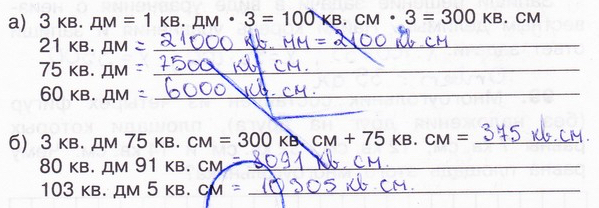 а) 3 кв. дм = 1 кв. дм · 3 = 100 кв. см · 3 = 300 кв. см
21 кв. дм = 21000 кв. мм = 2100 кв. см
75 кв. дм = 7500 кв. см.
60 кв. дм = 6000 кв. см.
б) 3 кв. дм 75 кв. см = 300 кв. см + 75 кв. см = 375 кв. см.
80 кв. дм 91 кв. см = 8091 кв. см.
103 кв. дм 5 кв. см = 10305 кв. см.